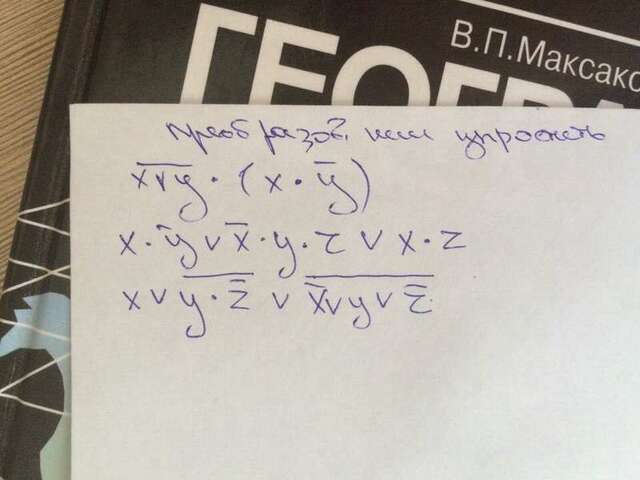 В.П.Максако
ГЕОГРА
преобразов. или упростить
x̅v̅y̅ · (x · y̅)
x · y̅ v x̅ · y · z v x · z
x v y̅ ̅·̅ ̅z̅̅ v x̅̅ ̅v̅ ̅y̅ ̅v̅ ̅z̅̅